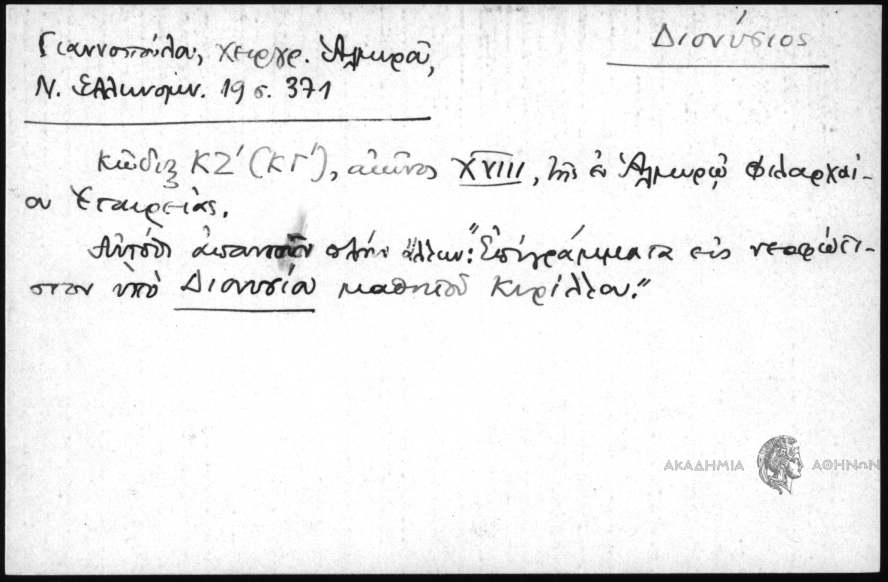 Διονύσιος
Γιαννοπούλου, χειργρ. Ἁλμυροῦ,
Ν. Ἑλληνομν. 19 σ. 371
Κῶδιξ ΚΖ' (ΚΓ'), αἰῶνος XVIII, τῆς ἐν Ἁλμυρῷ Φιλαρχαί-
ου Ἑταιρείας.
Αὐτόθι ἀπαντοῦν πλὴν ἄλλων: "Ἐπιγράμματα εἰς νεοφώτι-
στον ὑπὸ Διονυσίου μαθητοῦ Κυρίλλου."
ΑΚΑΔΗΜΙΑ ΑΘΗΝΩΝ